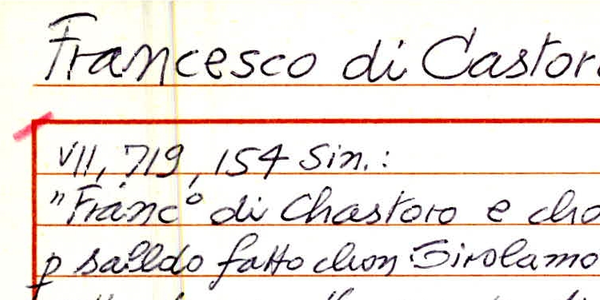 Francesco di Castor
VII, 719, 154 Sin.:
"Franc° di Chastoro e cho
p salldo fatto chon Girolamo